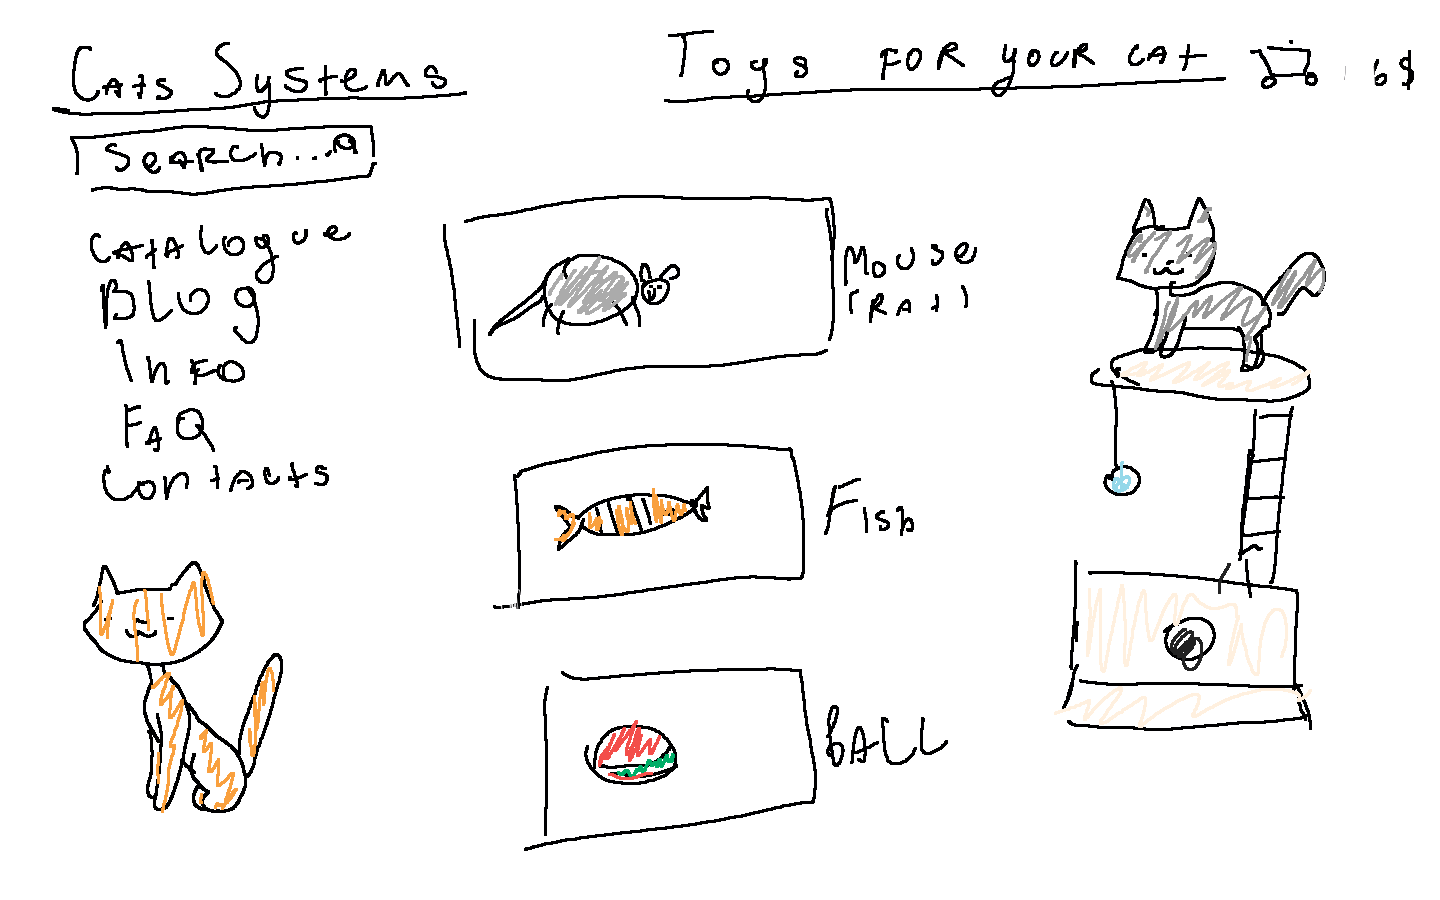 Cats Systems
Toys FOR your CAt 6$
SeARCh...
CAtAlogue
BLOg
InFO
FAQ
ContActs
Mouse
(RAt)
Fish
BALL